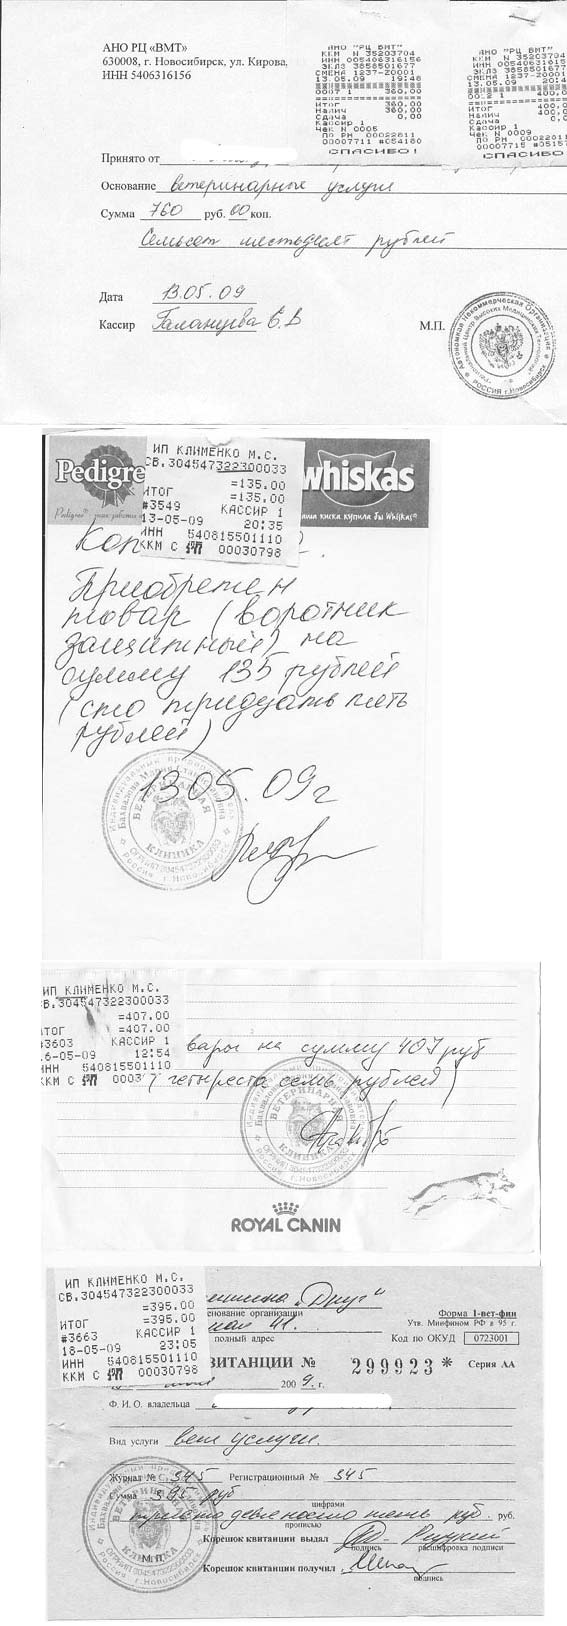 АНО РЦ «ВМТ»
630008, г. Новосибирск, ул. Кирова,
ИНН 5406316156
АНО "РЦ ВМТ"
ККМ N 35203704
ИНН 005406316156
ЭКЛЗ 3858501677
СМЕНА 1237-20001
13.05.09 19:48
0007 1 360,00
ИТОГ 360,00
НАЛИЧ 360,00
Сдача 0,00
Кассир 1
Чек N 0005
ПО РН 00022811
00007711 #054180
СПАСИБО!
АНО "РЦ ВМТ"
ККМ N 35203704
СМЕНА 1237-20001
13.05.09
400,
ИТОГ 400,
НАЛИЧ 400,
Сдача 0,0
Кассир 1
Чек N 0009
СПАСИБО!
Принято от
Основание ветеринарные услуги
Сумма 760 руб. 00 коп.
Семьсот шестьдесят рублей
Дата 13.05.09
Кассир Галанцева Е.В
М.П.
ИП КЛИМЕНКО М.С.
СВ.304547322300033
=135.00
ИТОГ =135.00
#3549 КАССИР 1
13-05-09 20:35
ИНН 540815501110
ККМ С ФП 00030798
Pedigre
Whiskas
ваша киска купила бы Whiskas
Приобретен
товар (воротник
защитный) на
сумму 135 рублей
(сто тридцать пять
рублей)
13.05.09г
ВЕТЕРИНАРНАЯ
КЛИНИКА
ИП КЛИМЕНКО М.С.
В.304547322300033
=407.00
ТОГ =407.00
#3603 КАССИР 1
6-05-09 12:54
НН 540815501110
ККМ С ФП 0003
вары на сумму 407 руб
(четыреста семь рублей)
ВЕТЕРИНАРНАЯ
КЛИНИКА
ROYAL CANIN
ИП КЛИМЕНКО М.С.
СВ.304547322300033
=395.00
ИТОГ =395.00
#3663 КАССИР 1
18-05-09 23:05
ИНН 540815501110
ККМ С ФП 00030798
"Друг"
менование организации
Форма 1-вет-фин
Утв. Минфином РФ в 95 г.
41.
полный адрес
Код по ОКУД 0723001
ВИТАНЦИИ № 299923 * Серия АА
2009 г.
Ф. И. О. владельца
Вид услуги вет услуги.
Журнал № 345 Регистрационный № 345
Сумма 395 руб
цифрами
триста девяносто пять руб. руб.
прописью
Корешок квитанции выдал
подпись расшифровка подписи
М.П.
Корешок квитанции получил
подпись
ВЕТЕРИНАРНАЯ
КЛИНИКА